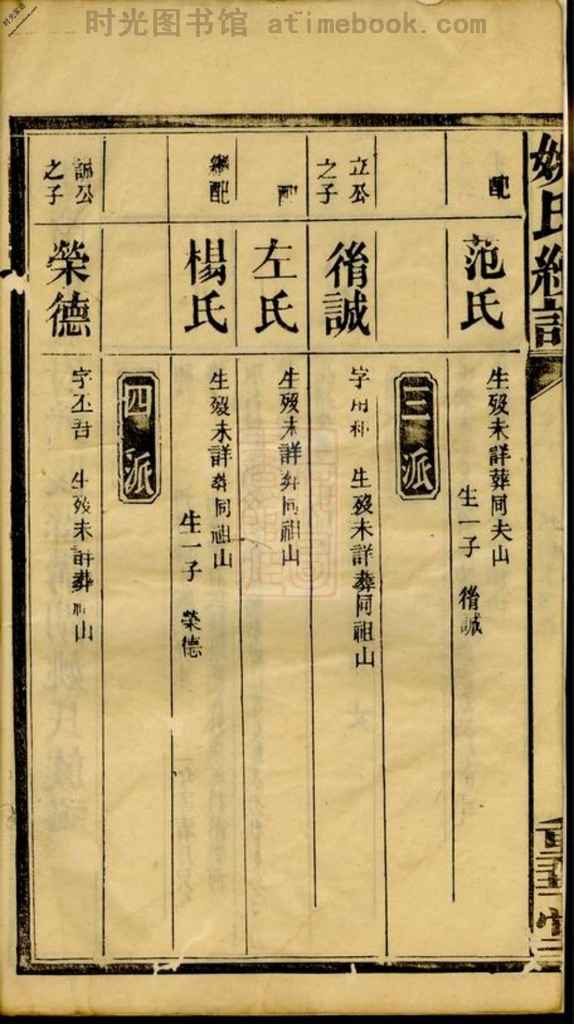 时光图书馆 atimebook.com
姚氏
配
范氏
生歿未詳葬同夫山
生一子 脩誠
三派
立公
之子
脩誠
生歿未詳葬同祖山
配
左氏
生歿未詳葬同祖山
繼配
楊氏
生歿未詳葬同祖山
生一子 榮德
四派
誠公
之子
榮德
生歿未詳葬祖山